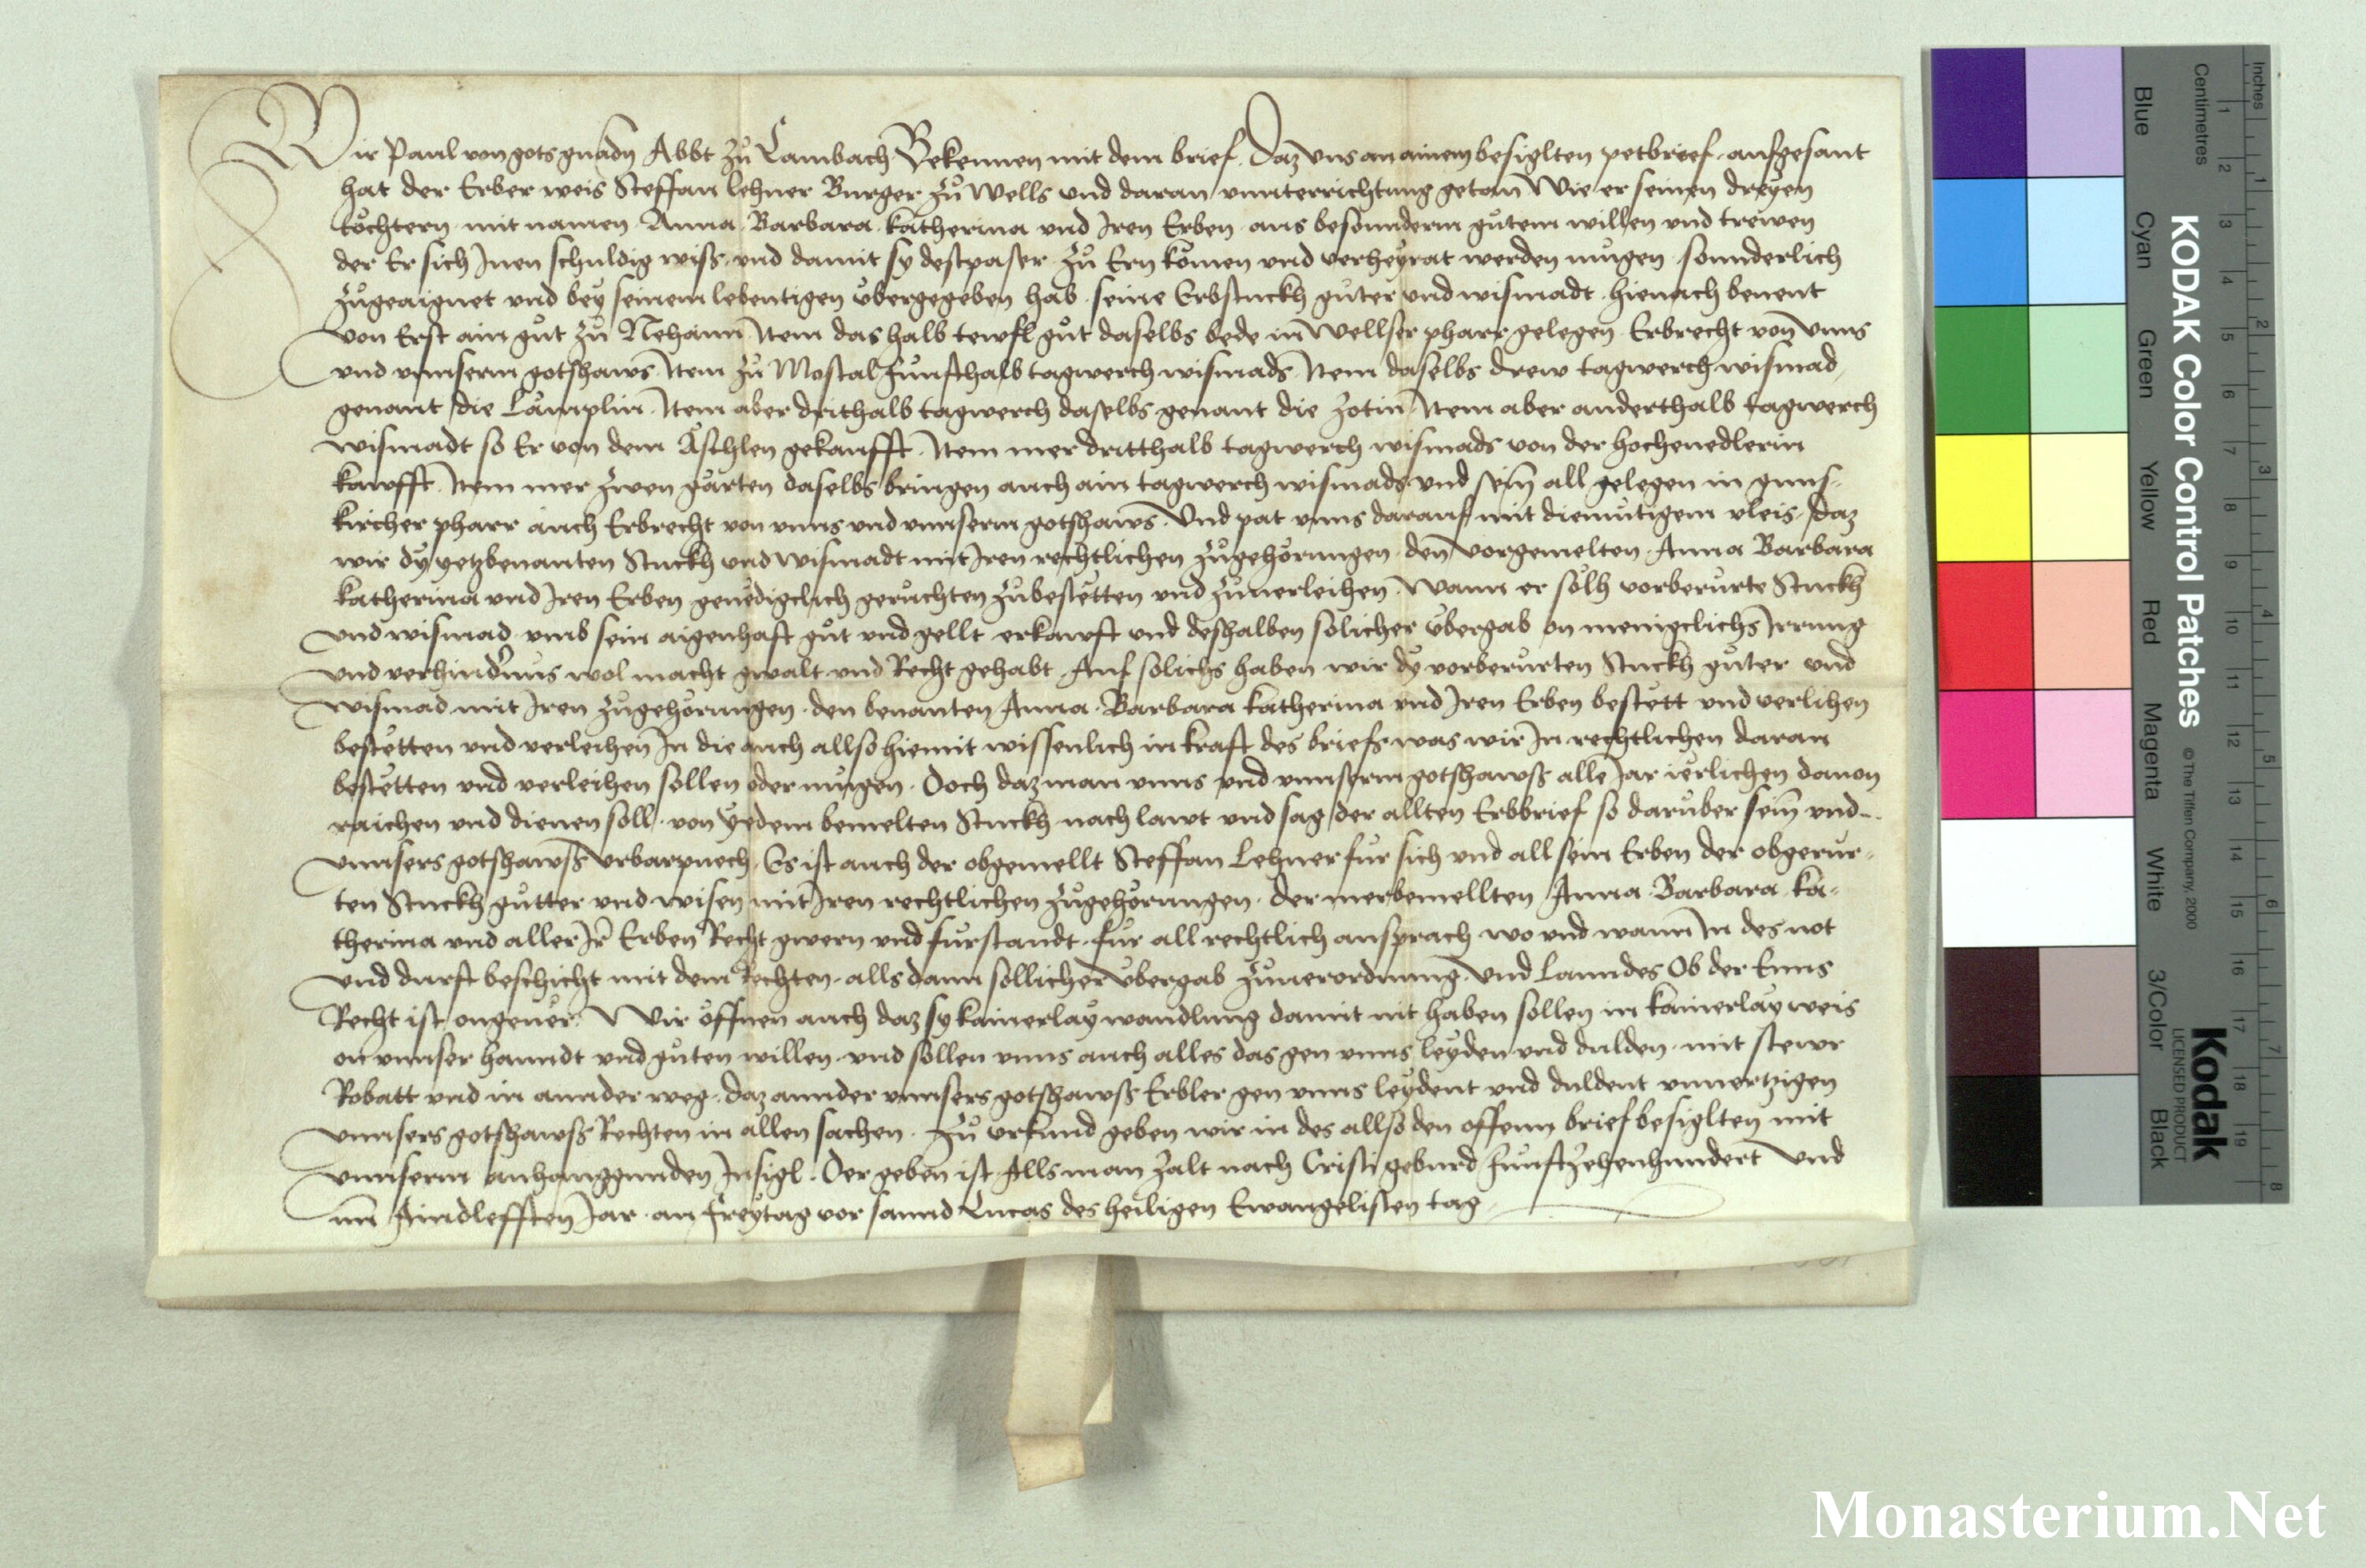 Wir Paul von gots gnadn Abbt zů Lambach Bekennen mit dem brief. Daz vns an ainem besiglten petbrief aufgesant
hat der Erber weis Steffan lehner Burger zů Wells vnd daran vnnterrichtung getan Wie er seinen dreyen
töchtern mit namen Anna Barbara katherina vnd Iren Erben aus besonnderm gůtem willen vnd trewen
der Er sich Inen schuldig wiss vnd damit sy destpaser zů Ern komen vnd verheyrat werden mügen sonnderlich
zůgeaignet vnd bey seinem lebentigen übergegeben hab seine Erbstuckh güter vnd wismadt hienach benent
von Erst ain gůt zů Nehaim Item das halb tewfl gůt daselbs bede in Wellser pharr gelegen Erbrecht von vnns
vnd vnnserm gotshaws Item zů Mostal funfthalb tagwerch wismads Item daselbs drew tagwerch wismad
genant die Lämplin Item aber drithalb tagwerch daselbs genant die zotin Item aber anderthalb tagwerch
wismadt so Er von dem Äschlen gekaufft Item mer dritthalb tagwerch wismads von der hochenedlerin
kawfft Item mer zwen gärten daselbs bringen auch ain tagwerch wismads vnd sein all gelegen in guns-
kircher pharr auch Erbrecht von vnns vnd vnnserm gotshaws Vnd pat vnns darauf mit diemütigem vleis daz
wir dy yetzbenanten Stuckh vnd wismadt mit Iren rechtlichen zůgehörungen den vorgemelten Anna Barbara
katherina vnd Iren Erben genedigclich gerüchten zůbestetten vnd zůuerleihen Wann er sölh vorberürte Stuckh
vnd wismad vmb sein aigenhaft gůt vnd gellt erkawft vnd deshalben solicher übergab on menigclichs Irrung
vnd verhindrnus wol macht gwalt vnd Recht gehabt Auf solichs haben wir dy vorberürten Stuckh güter vnd
wismad mit Iren zůgehörungen den benanten Anna Barbara katherina vnd Iren Erben bestett vnd verlihen
bestetten vnd verleihen In die auch allso hiemit wissenlich in kraft des briefs was wir In rechtlichen daran
bestetten vnd verleihen sollen oder mügen Doch daz man vnns vnd vnnserm gotshawss alle Jar ierlichen dauon
raichen vnd dienen soll von yedem bemelten Stuckh nach lawt vnd sag der allten Erbbrief so darüber sein vnd
vnnsers gotshawss vrbarpuech Es ist auch der obgemellt Steffan Lehner fur sich vnd all sein Erben der obgerur-
ten Stuckh gütter vnd wisen mit Iren rechtlichen zůgehörungen der merbemellten Anna Barbara ka-
therina vnd aller Ir Erben Recht gwern vnd fürstandt für all rechtlich ansprach wo vnd wann In des not
vnd durft beschicht mit dem Rechten alls dann sollicher übergab zůuerordnung vnd Lanndes Ob der Enns
Recht ist ongeuer Wir öffnen auch daz sy kainerlay wandlung damit nit haben sollen in kainerlay weis
on vnnser hanndt vnd gůten willen vnd sollen vnns auch alles das gen vnns leyden vnd dulden mit stewr
Robatt vnd in annder weg daz annder vnnsers gotshawss Erbler gen vnns leydent vnd duldent vnuertzigen
vnnsers gotshawss Rechten in allen sachen Zů vrkund geben wir in des allso den offenn brief besiglten mit
vnnserm anhanggunden Insigl Der geben ist Alls man zalt nach Cristi geburd funftzehenhundert vnd
im Aindlefften Jar an freytag vor sannd Lucas des heiligen Ewangelisten tag
KODAK Color Control Patches
© The Tiffen Company, 2000
Kodak
LICENSED PRODUCT
Blue
Cyan
Green
Yellow
Red
Magenta
White
3/Color
Black
Centimetres
1 2 3 4 5 6 7 8 9 10 11 12 13 14 15 16 17 18 19
Inches
1 2 3 4 5 6 7 8
Monasterium.Net